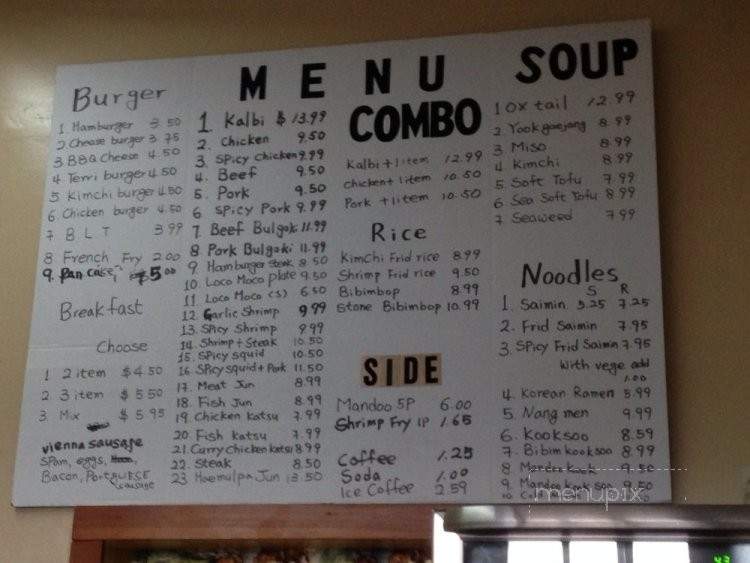 Burger
1 Hamburger 3.50
2. Chease burger 3.75
3. BBQ Cheese 4.50
4 Terri burger 4.50
5 Kimchi burger 4.50
6. Chicken burger 4.50
7 BLT 3.99
8 French Fry 2.00
9. Pan Cake $5.00
Breakfast
Choose
1 2 item $4.50
2. 3 item $5.50
3. Mix $5.95
vienna sausage
spam, eggs,
Bacon, Portguese
sausage
MENU
1 Kalbi $13.99
2. Chicken 9.50
3. Spicy Chicken 9.99
4. Beef 9.50
5. Pork 9.50
6 Spicy Pork 9.99
7 Beef Bulgoki 11.99
8 Pork Bulgoki 11.99
9 Hamburger Steak 8.50
10 Loco Moco plate 9.50
11 Loco Moco (S) 6.50
12 Garlic Shrimp 9.99
13. Spicy Shrimp 9.99
14. Shrimp + Steak 10.50
15. Spicy squid 10.50
16 Spicy squid + Pork 11.50
17. Meat Jun 8.99
18. Fish Jun 8.99
19. Chicken Katsu 7.99
20. Fish Katsu 7.99
21. Curry chicken Katsu 8.99
22. Steak 8.50
23 Haemulpa Jun 13.50
COMBO
Kalbi + 1 item 12.99
Chicken + 1 item 10.50
Pork + 1 item 10.50
Rice
Kimchi Frid rice 8.99
Shrimp Frid rice 9.50
Bibimbop 8.99
Stone Bibimbop 10.99
SIDE
Mandoo 5P 6.00
Shrimp Fry 1P 1.65
Coffee 1.25
Soda 1.00
Ice Coffee 2.59
SOUP
1 Ox tail 12.99
2 Yookgaejang 8.99
3 Miso 8.99
4 Kimchi 8.99
5. Soft Tofu 7.99
6. Sea Soft Tofu 8.99
7. Seaweed 7.99
Noodles
S R
1. Saimin 5.25 7.25
2. Frid Saimin 7.95
3. Spicy Frid Saimin 7.95
With vege add
1.00
4. Korean Ramen 5.99
5. Nang men 9.99
6. Kooksoo 8.59
7. Bibim kooksoo 8.99
8 Mandoo kook 9.50
9. Mandoo kook soo 9.50
10
menupix